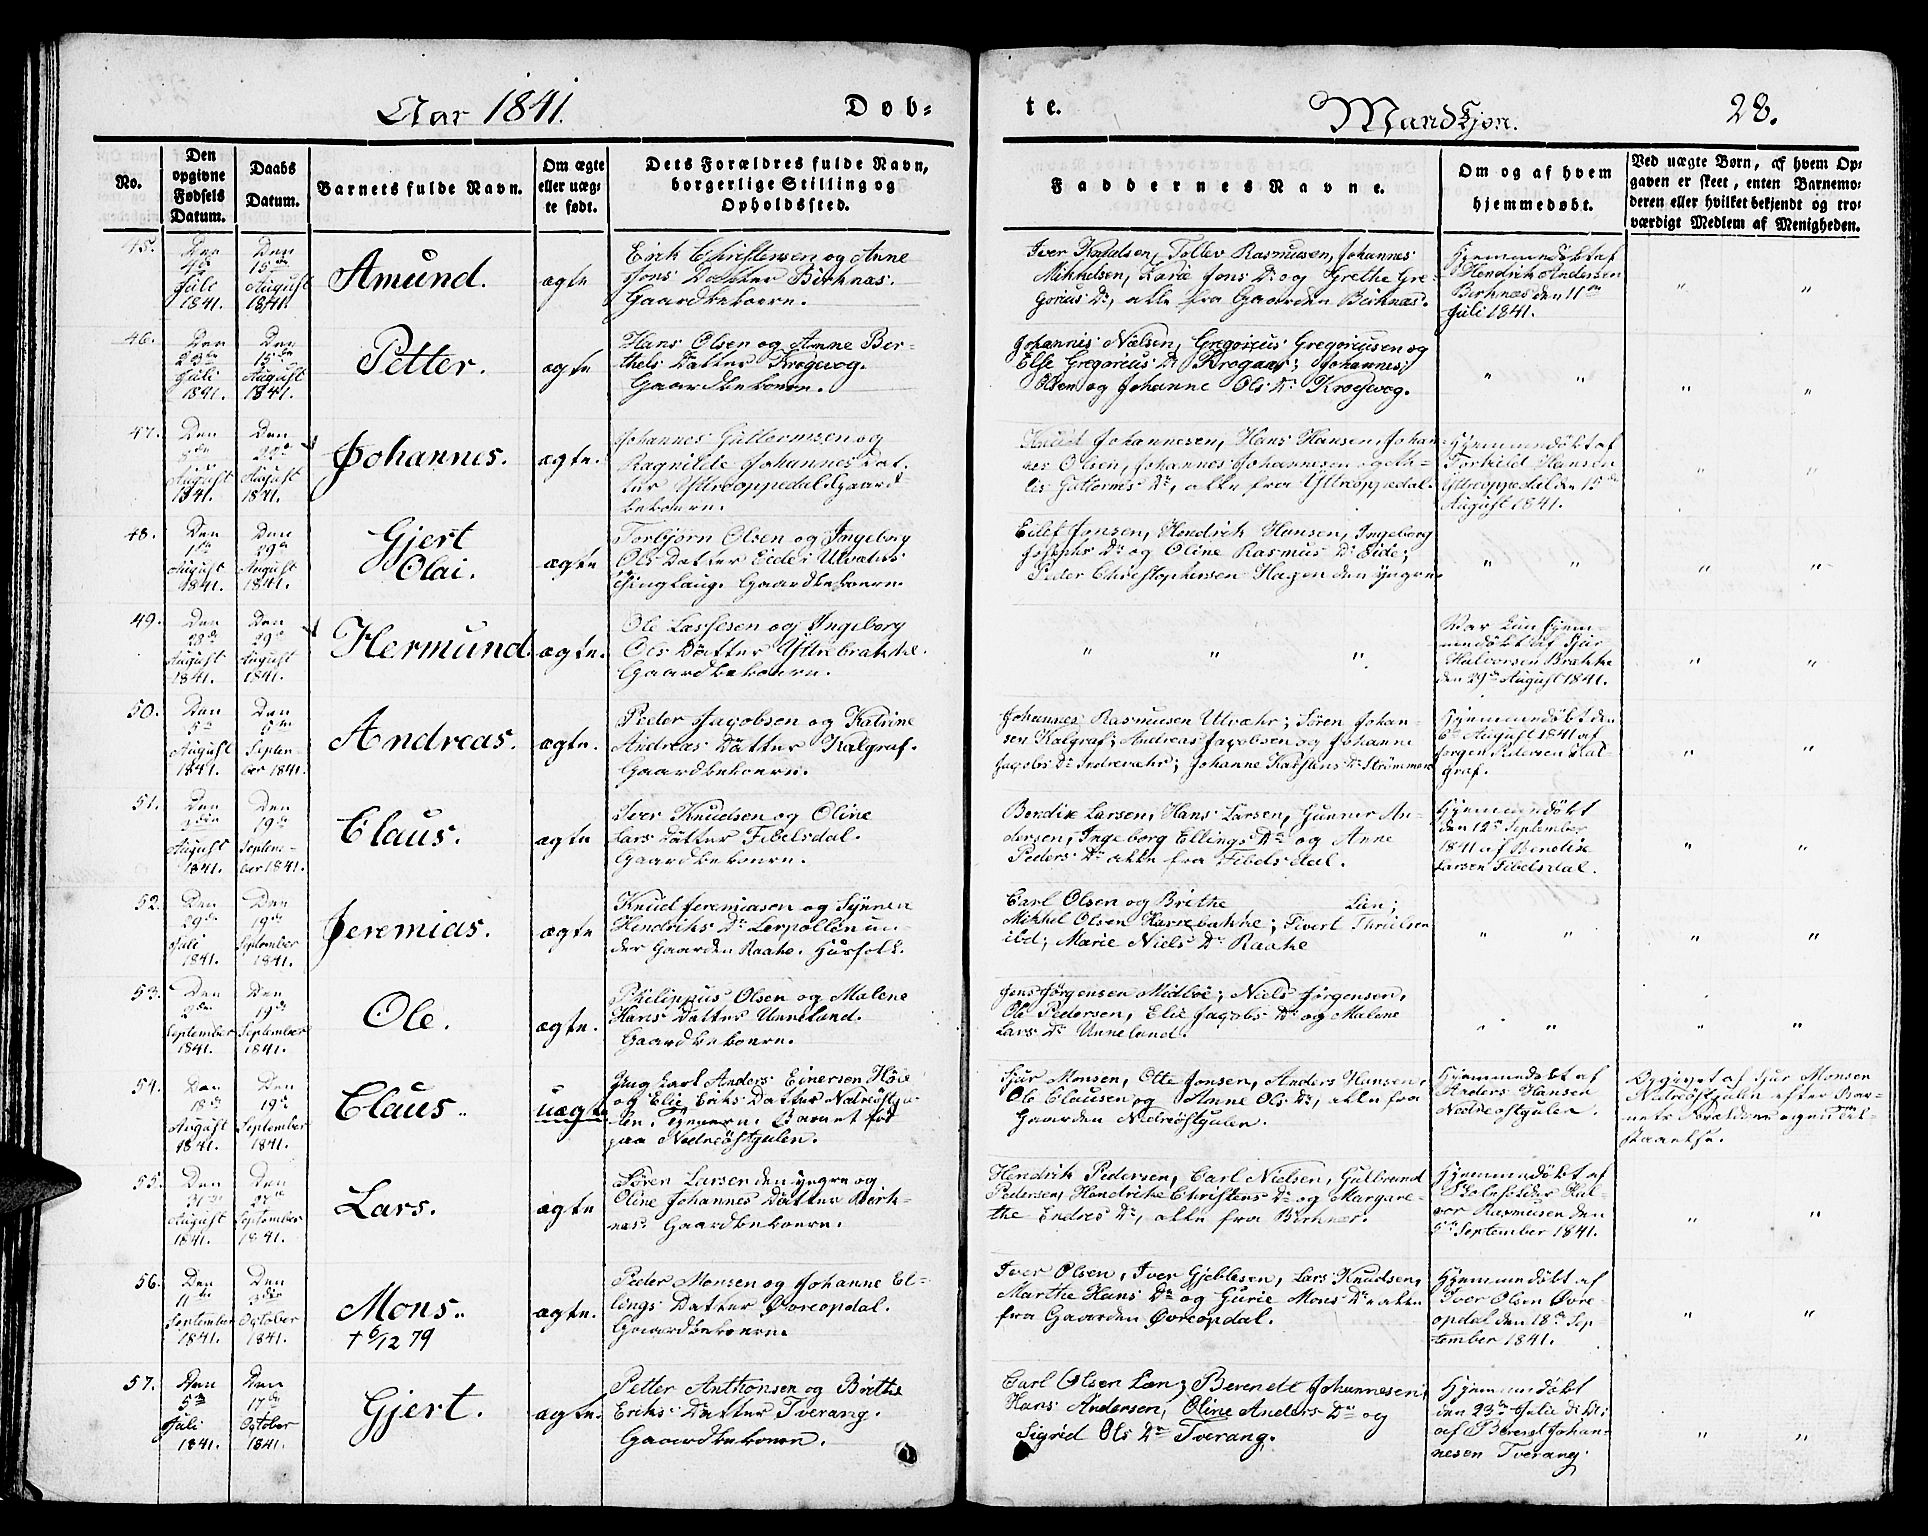 Aar 1841.
Døb-
te.
Mandkjøn.
28.
No.
Den opgivne Fødsels Datum.
Daabs Datum.
Barnets fulde Navn.
Om ægte eller uægte født.
Dets Forældres fulde Navn, borgerlige Stilling og Opholdssted.
Faddernes Navne.
Om og af hvem hjemmedøbt.
Ved uægte Børn, af hvem Opgaven er skeet, enten Barnemoderen eller hvilket bekjendt og troværdigt Medlem af Menigheden.
45.
Den
Juli
1841.
Den
15de
August
1841.
Amund.
ægte
Erik Christensen og Anne
Jons Datter Birknæs.
Gaardbekoern.
Iver Knudsen, Tollev Rasmusen, Johannes
Mikkelsen, Kari Jons Dr og Grethe Gre-
gorius Dr, alle fra Gaarden Birknæs.
Hjemmedøbt af
Hendrik Andersen
Birknæs den 11te
Juli 1841.
46.
Den
23de
Juli
1841.
Den
15de
August
1841.
Petter.
ægte
Hans Olsen og Anne Ber-
thels Datter Krogevog.
Gaardbekoern.
Johannes Nielsen, Gregorius Gregoriusen og
Else Gregorius Dr Krogaas; Johannes
Olsen og Johanne Ols Dr Krogevog.
47.
Den
August
1841.
Den
August
1841.
Johannes.
ægte.
Johannes Guttormsen og
Ragnilde Johannes Dat-
ter Yttreoppedal. Gaard-
bekoern.
Johannesen, Hans Hansen, Johan-
nes Olsen, Johannes Johannesen og
Guttorms Dr, alle fra Yttreoppedal.
Hjemmedøbt af
Torkild Hansen
Yttreoppedal den 15de
August 1841.
48.
Den
August
1841.
Den
29de
August
1841.
Gjert
Olai.
ægte
Torbjørn Olsen og Ingeborg
Ols Datter Eide i Utvær
Ginglaug. Gaardbekoern.
Eilef Jonsen, Hendrik Hansen, Ingeborg
Josephs Dr og Oline Rasmus Dr Eide;
Peder Christophersen Hagen den yngre
49.
Den
August
1841.
Den
29de
August
1841.
Hermund.
ægte.
Ole Lassesen og Ingeborg
Ols Datter Yttrebrække.
Gaardbekoern.
Var kun hjem-
medøbt af Sjur
Halvorsen Brække
den 29de August 1841.
50.
Den
5te
August
1841.
Den
Septem-
ber 1841.
Andreas.
ægte.
Peder Jacobsen og Katrine
Andreas Datter Kalgraf.
Gaardbekoern.
Johannes Rasmusen Utvær; Søren Johan-
sen Kalgraf; Andreas Jacobsen og Johanne
Jacobs Dr Indrevær; Johanne Karstens Dr Strømmen
Hjemmedøbt den
6te August 1841 af
Jørgen Pedersen Kal-
graf.
51.
Den
August
1841.
Den
19de
Septem-
ber 1841.
Claus.
ægte
Iver Knudsen og Oline
Lars Datter Fibelsdal.
Gaardbekoern.
Bendix Larsen, Hans Larsen, Gunner An-
dersen, Ingeborg Ellings Dr og Anne
Peders Dr alle fra Fibelsdal.
Hjemmedøbt
den 12te September
1841 af Bendix
Larsen Fibelsdal.
52.
Den
29de
Juli
1841.
Den
19de
September
1841.
Jeremias.
ægte
Knud Jeremiasen og Synnen
Hendriks Dr Lerpollen un-
der Gaarden Raahe. Husfolk.
Carl Olsen og Brithe Lien;
Mikkel Olsen Harrebakke; Sivert
ibd; Marie Niels Dr Raahe
53.
Den
2den
September
1841.
Den
19de
September
1841.
Ole.
ægte.
Philippus Olsen og Malene
Hans Datter Unneland.
Gaardbekoern.
Jens Jørgensen Midbøe; Niels Jørgensen,
Ole Pedersen, Elie Jacobs Dr og Malene
Lars Dr Unneland.
54.
Den
18de
August
1841.
Den
19de
September
1841.
Claus.
uægte
Ung Karl Anders Einersen Høie
og Elie Eriks Datter Nedreøstgu-
len, Barnet fød
paa Nedreøstgulen.
Sjur Monsen, Otte Jonsen, Anders Hansen,
Ole Clausen og Anne Ols Dr, alle fra
Gaarden Nedreøstgulen.
Hjemmedøbt af
Anders Hansen
Nedreøstgulen.
Opgivet af Sjur Monsen
Nedreøstgulen efter Bar-
nets Forældres egen Til-
staaelse.
55.
Den
August
1841.
Den
September
1841.
Lars.
ægte
Søren Larsen den yngre og
Oline Johannes Datter Birk-
næs. Gaardbekoern.
Hendrik Pedersen, Carl Nielsen, Gulbrand
Pedersen, Hendrikke Christens Dr og Margare-
the Endres Dr, alle fra Birknæs.
Hjemmedøbt af
Skoleholder Hal-
vor Rasmusen den
5te September 1841.
56.
Den
11te
September
1841.
Den
3die
October
1841.
Mons.
† 6/12 79
ægte.
Peder Monsen og Johanne El-
lings Datter Øvreopdal.
Gaardbekoern.
Iver Olsen, Iver Gjeblesen, Lars Knudsen,
Marthe Hans Dr og Gurie Mons Dr alle
fra Gaarden Øvreopdal.
Hjemmedøbt af
Iver Olsen Øvre-
opdal den 18de Sep-
tember 1841.
57.
Den
5te
Juli
1841.
Den
17de
October
1841.
Gjert.
ægte.
Petter Anthonsen og Brithe
Eriks Datter Tverang.
Gaardbekoern.
Carl Olsen Lien; Berendt Johannesen;
Hans Andersen, Oline Anders Dr og
Sigrid Ols Dr Tverang.
Hjemmedøbt
den 23de Julie
af Berent Johan-
nesen Tverang.